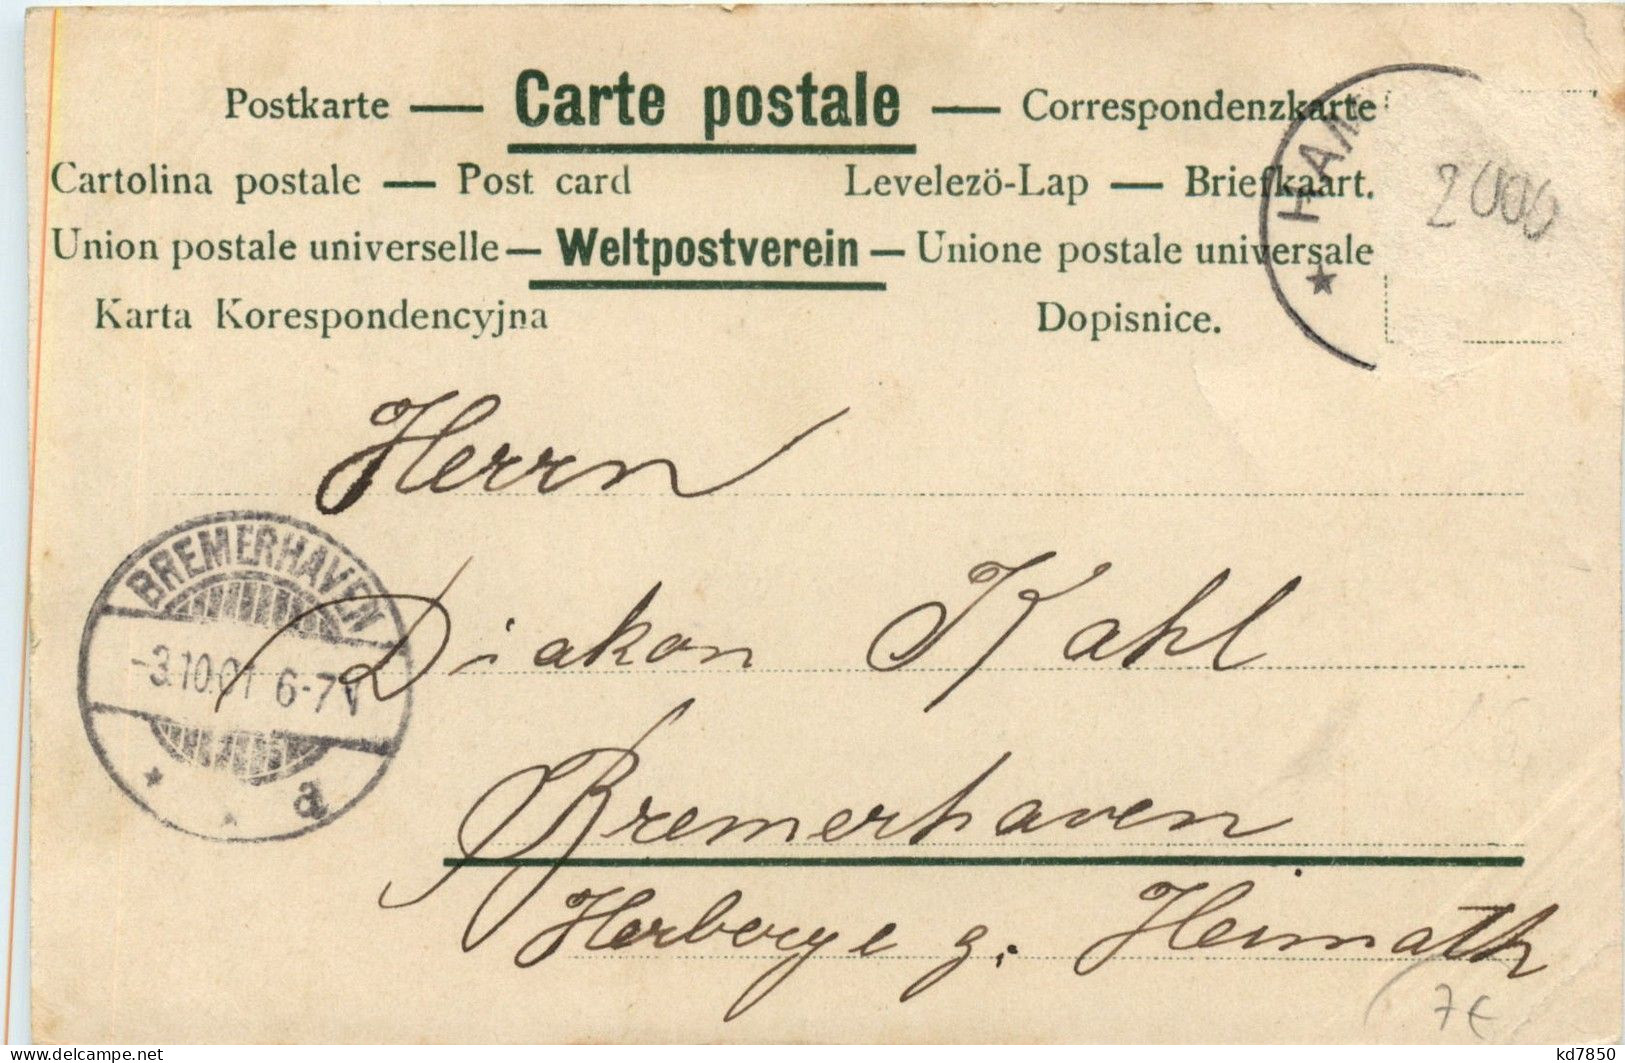 Postkarte — Carte postale — Correspondenzkarte
Cartolina postale — Post card Levelezö-Lap — Briefkaart.
Union postale universelle — Weltpostverein — Unione postale universale
Karta Korespondencyjna Dopisnice.
HAM
2006
Herrn
BREMERHAVEN
-3.10.01 6-7V
* * a
Diakon Kahl
Bremerhaven
Herberge z. Heimath
7€
kd7850